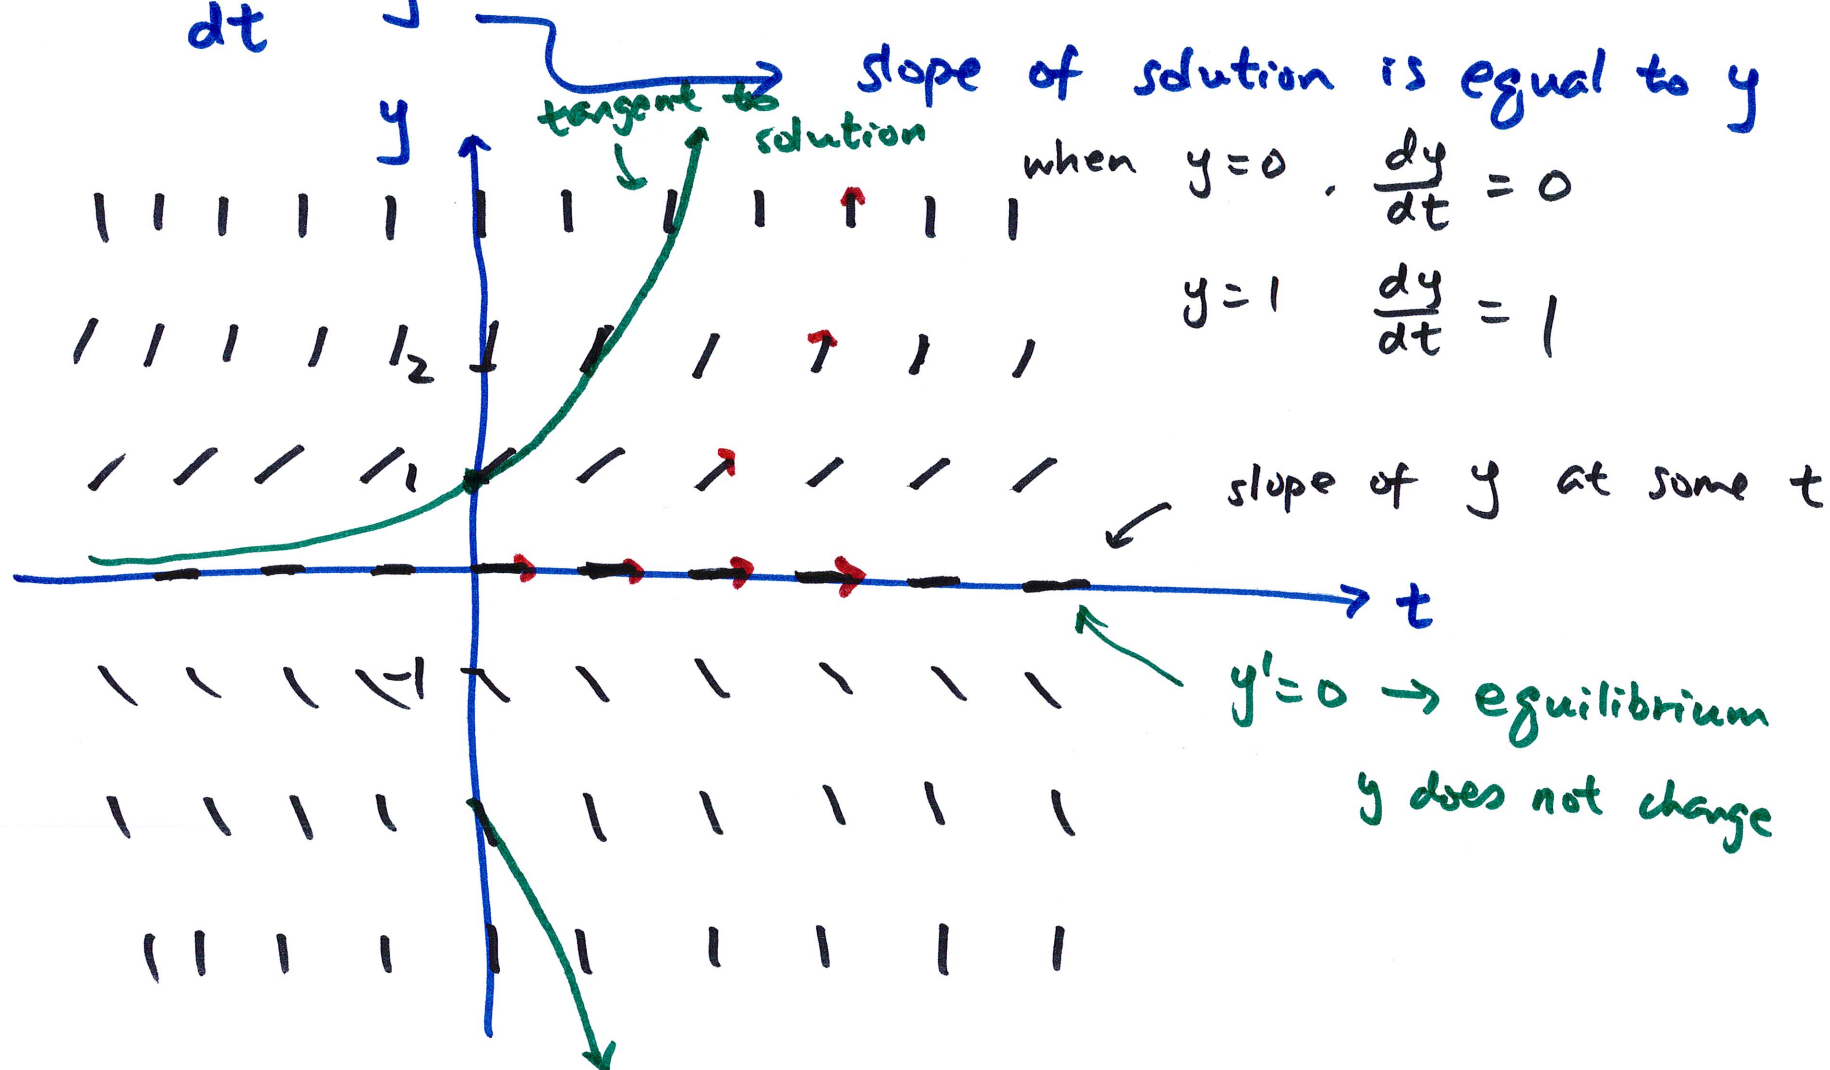 dt
slope of solution is equal to y
y
tangent to
solution
when y=0 . dy/dt = 0
y=1 dy/dt = 1
2
1
slope of y at some t
t
-1
y'=0 → equilibrium
y does not change